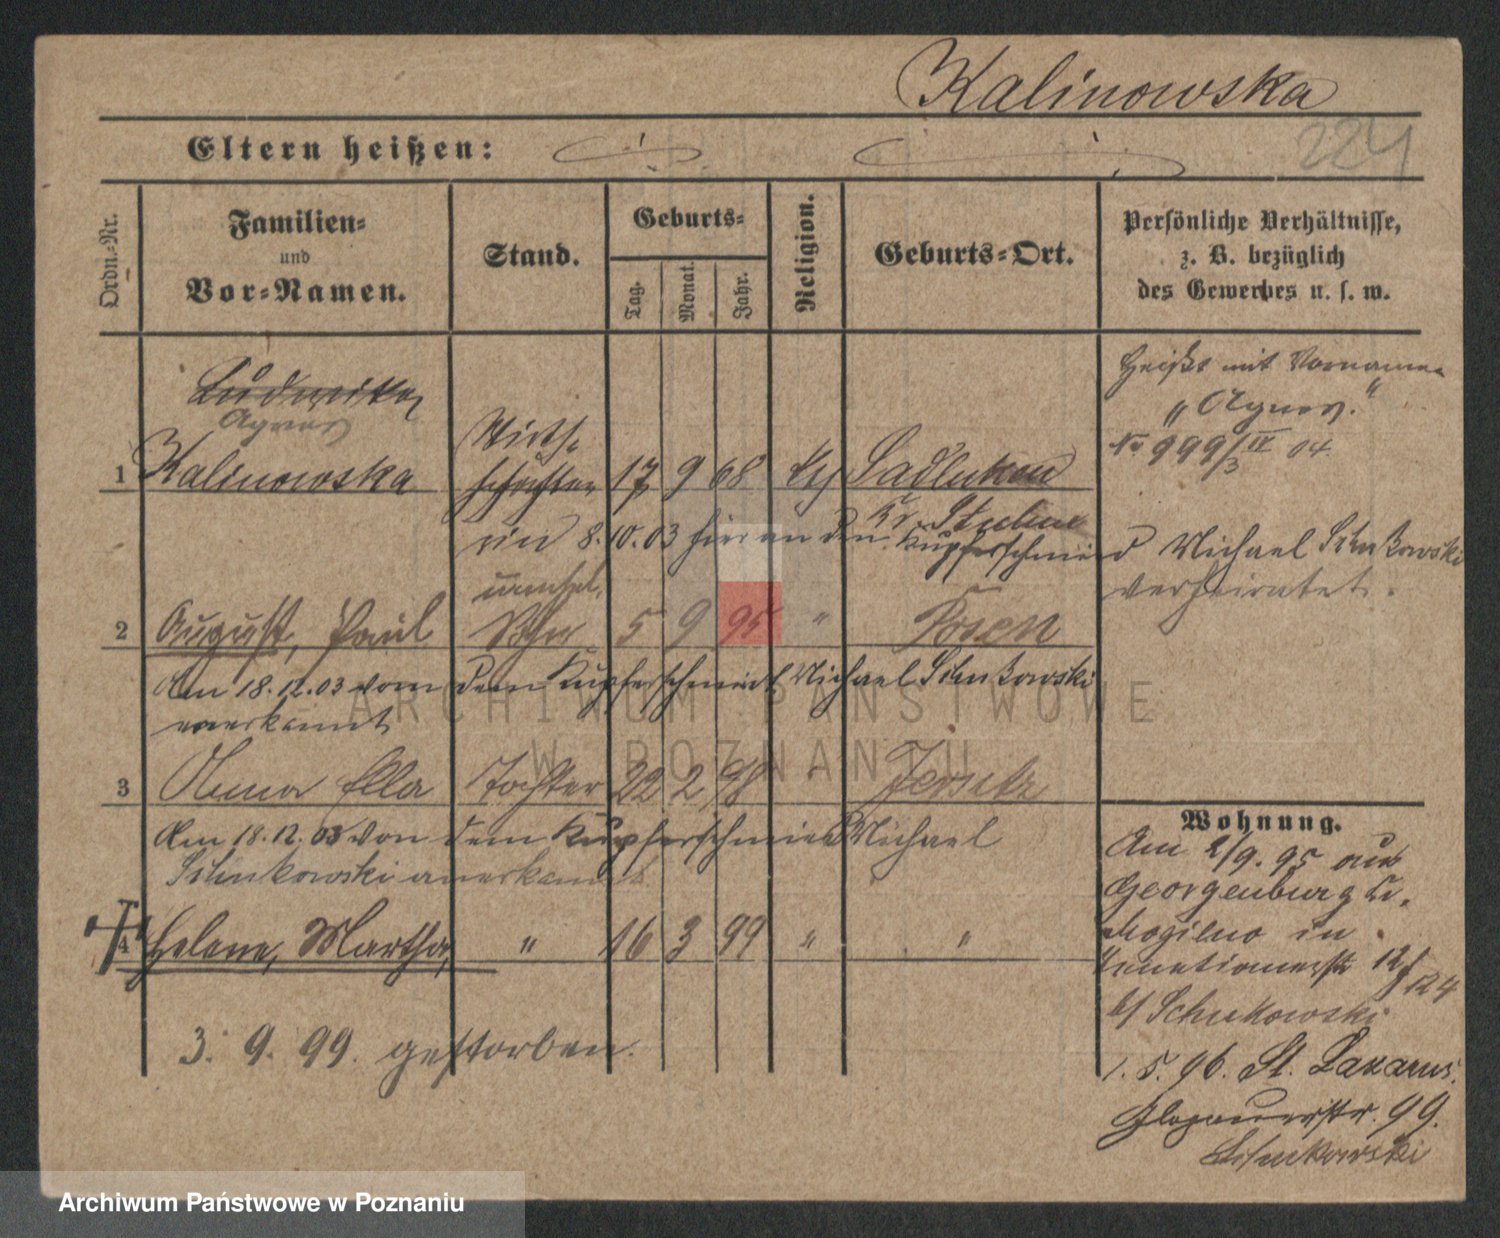 Kalinowska
224
Eltern heißen:
Ordn.-Nr.
Familien-
und
Vor-Namen.
Stand.
Geburts-
Tag.
Monat.
Jahr.
Religion.
Geburts-Ort.
Persönliche Verhältnisse,
z. B. bezüglich
des Gewerbes u. s. w.
Ludwika
Agnes
1 Kalinowska
Wirth-
schafterin 17 9 68
Heißt mit Vornamen
„Agnes."
No 999/3 IV 04
Kr. Stuhm
8.10.03 hier an den Kupferschmied Michael
verheiratet.
unehel.
2 August, Paul Sohn 5 9 95 " Posen
Am 18.12.03 vom dem Kupferschmied Michael
anerkannt
3 Anna Ella Tochter 22 2 98 " Jersitz
Am 18.12.03 von dem Kupferschmied Michael
anerkannt
4 Helene, Martha, " 16 3 99 " "
3. 9. 99. gestorben.
Wohnung.
Am 2/9. 95 aus
Georgenburg Kr.
Mogilno in
12/124
b/
1. 5. 96. St. Lazarus.
Glogauerstr. 99.
ARCHIWUM PAŃSTWOWE
W POZNANIU
Archiwum Państwowe w Poznaniu